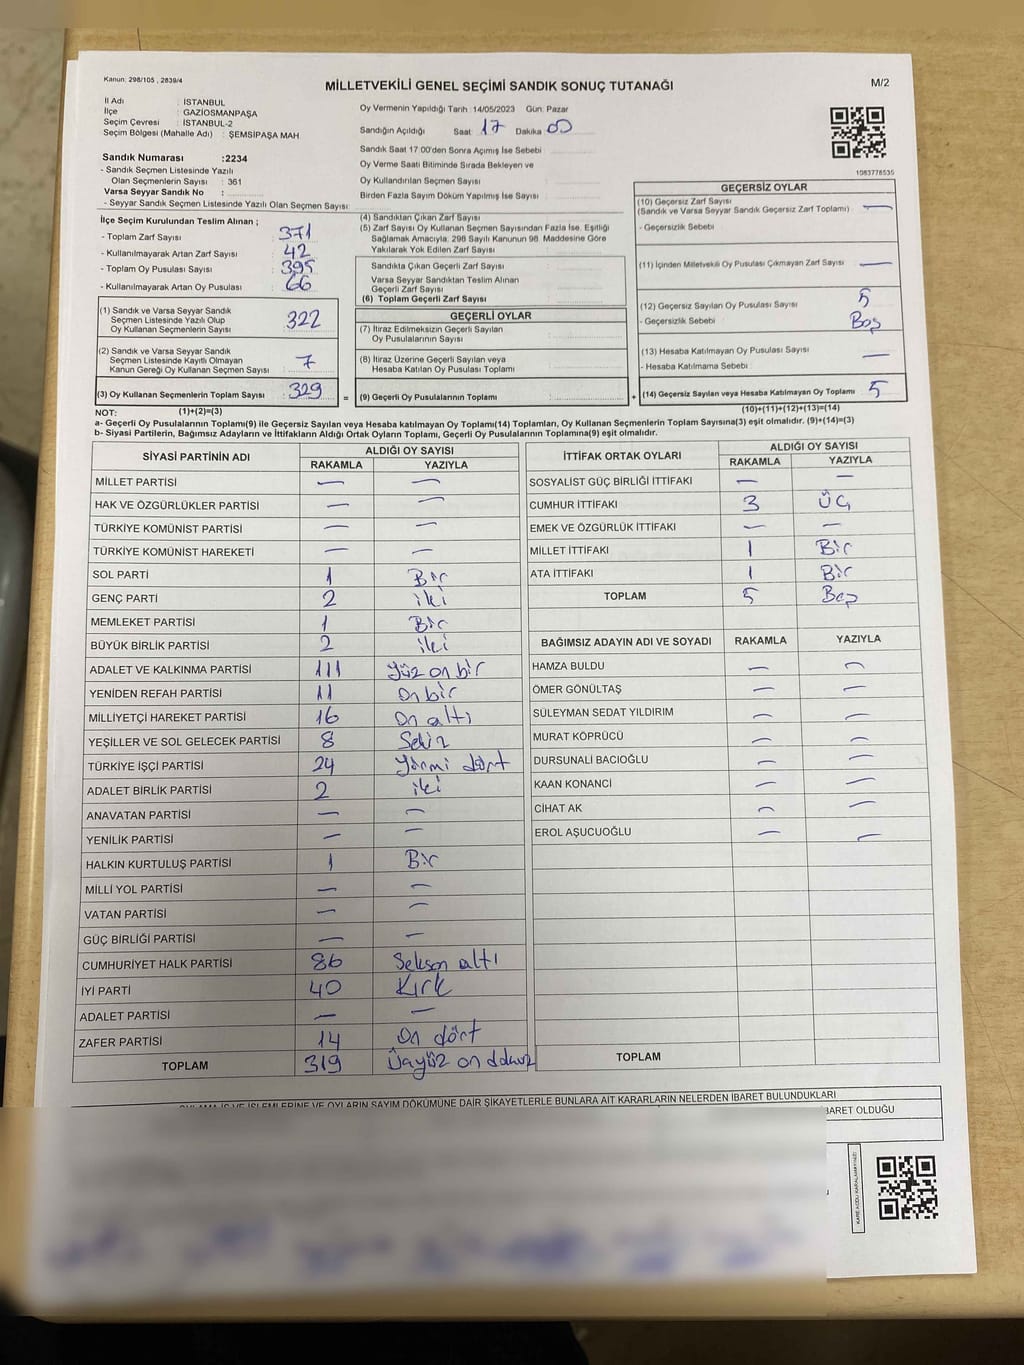 Kanun: 298/105 , 2839/4
MİLLETVEKİLİ GENEL SEÇİMİ SANDIK SONUÇ TUTANAĞI
M/2
İl Adı : İSTANBUL
İlçe : GAZİOSMANPAŞA
Seçim Çevresi : İSTANBUL-2
Seçim Bölgesi (Mahalle Adı) : ŞEMSİPAŞA MAH
Sandık Numarası :2234
- Sandık Seçmen Listesinde Yazılı
Olan Seçmenlerin Sayısı : 361
Varsa Seyyar Sandık No :
- Seyyar Sandık Seçmen Listesinde Yazılı Olan Seçmen Sayısı:
Oy Vermenin Yapıldığı Tarih :14/05/2023 Gün: Pazar
Sandığın Açıldığı Saat: 17 Dakika: 00
Sandık Saat 17:00'den Sonra Açımış İse Sebebi :
Oy Verme Saati Bitiminde Sırada Bekleyen ve
Oy Kullandırılan Seçmen Sayısı :
Birden Fazla Sayım Döküm Yapılmış İse Sayısı :
1083778535
İlçe Seçim Kurulundan Teslim Alınan ;
- Toplam Zarf Sayısı : 371
- Kullanılmayarak Artan Zarf Sayısı : 42
- Toplam Oy Pusulası Sayısı : 395
- Kullanılmayarak Artan Oy Pusulası : 66
(1) Sandık ve Varsa Seyyar Sandık
Seçmen Listesinde Yazılı Olup
Oy Kullanan Seçmenlerin Sayısı : 322
(2) Sandık ve Varsa Seyyar Sandık
Seçmen Listesinde Kayıtlı Olmayan
Kanun Gereği Oy Kullanan Seçmen Sayısı : 7
(3) Oy Kullanan Seçmenlerin Toplam Sayısı : 329
(4) Sandıktan Çıkan Zarf Sayısı :
(5) Zarf Sayısı Oy Kullanan Seçmen Sayısından Fazla İse, Eşitliği
Sağlamak Amacıyla, 298 Sayılı Kanunun 98. Maddesine Göre
Yakılarak Yok Edilen Zarf Sayısı :
Sandıkta Çıkan Geçerli Zarf Sayısı :
Varsa Seyyar Sandıktan Teslim Alınan
Geçerli Zarf Sayısı :
(6) Toplam Geçerli Zarf Sayısı :
GEÇERLİ OYLAR
(7) İtiraz Edilmeksizin Geçerli Sayılan
Oy Pusulalarının Sayısı :
(8) İtiraz Üzerine Geçerli Sayılan veya
Hesaba Katılan Oy Pusulası Toplamı :
= (9) Geçerli Oy Pusulalarının Toplamı :
GEÇERSİZ OYLAR
(10) Geçersiz Zarf Sayısı :
(Sandık ve Varsa Seyyar Sandık Geçersiz Zarf Toplamı) —
- Geçersizlik Sebebi :
(11) İçinden Milletvekili Oy Pusulası Çıkmayan Zarf Sayısı : —
(12) Geçersiz Sayılan Oy Pusulası Sayısı : 5
- Geçersizlik Sebebi : Boş
(13) Hesaba Katılmayan Oy Pusulası Sayısı : —
- Hesaba Katılmama Sebebi :
+ (14) Geçersiz Sayılan veya Hesaba Katılmayan Oy Toplamı : 5
NOT: (1)+(2)=(3)
(10)+(11)+(12)+(13)=(14)
a- Geçerli Oy Pusulalarının Toplamı(9) ile Geçersiz Sayılan veya Hesaba katılmayan Oy Toplamı(14) Toplamları, Oy Kullanan Seçmenlerin Toplam Sayısına(3) eşit olmalıdır. (9)+(14)=(3)
b- Siyasi Partilerin, Bağımsız Adayların ve İttifakların Aldığı Ortak Oyların Toplamı, Geçerli Oy Pusulalarının Toplamına(9) eşit olmalıdır.
SİYASİ PARTİNİN ADI ALDIĞI OY SAYISI
RAKAMLA YAZIYLA
MİLLET PARTİSİ — —
HAK VE ÖZGÜRLÜKLER PARTİSİ — —
TÜRKİYE KOMÜNİST PARTİSİ — —
TÜRKİYE KOMÜNİST HAREKETİ — —
SOL PARTİ 1 Bir
GENÇ PARTİ 2 iki
MEMLEKET PARTİSİ 1 Bir
BÜYÜK BİRLİK PARTİSİ 2 iki
ADALET VE KALKINMA PARTİSİ 111 Yüz on bir
YENİDEN REFAH PARTİSİ 11 On bir
MİLLİYETÇİ HAREKET PARTİSİ 16 On altı
YEŞİLLER VE SOL GELECEK PARTİSİ 8 Sekiz
TÜRKİYE İŞÇİ PARTİSİ 24 Yirmi dört
ADALET BİRLİK PARTİSİ 2 iki
ANAVATAN PARTİSİ — —
YENİLİK PARTİSİ — —
HALKIN KURTULUŞ PARTİSİ 1 Bir
MİLLİ YOL PARTİSİ — —
VATAN PARTİSİ — —
GÜÇ BİRLİĞİ PARTİSİ — —
CUMHURİYET HALK PARTİSİ 86 Seksen altı
İYİ PARTİ 40 Kırk
ADALET PARTİSİ — —
ZAFER PARTİSİ 14 On dört
TOPLAM 319
İTTİFAK ORTAK OYLARI ALDIĞI OY SAYISI
RAKAMLA YAZIYLA
SOSYALİST GÜÇ BİRLİĞİ İTTİFAKI — —
CUMHUR İTTİFAKI 3 Üç
EMEK VE ÖZGÜRLÜK İTTİFAKI — —
MİLLET İTTİFAKI 1 Bir
ATA İTTİFAKI 1 Bir
TOPLAM 5 Beş
BAĞIMSIZ ADAYIN ADI VE SOYADI RAKAMLA YAZIYLA
HAMZA BULDU — —
ÖMER GÖNÜLTAŞ — —
SÜLEYMAN SEDAT YILDIRIM — —
MURAT KÖPRÜCÜ — —
DURSUNALİ BACIOĞLU — —
KAAN KONANCİ — —
CİHAT AK — —
EROL AŞUCUOĞLU — —
TOPLAM
OYLAMA İŞ VE İŞLEMLERİNE VE OYLARIN SAYIM DÖKÜMÜNE DAİR ŞİKAYETLERLE BUNLARA AİT KARARLARIN NELERDEN İBARET BULUNDUKLARI
İBARET OLDUĞU